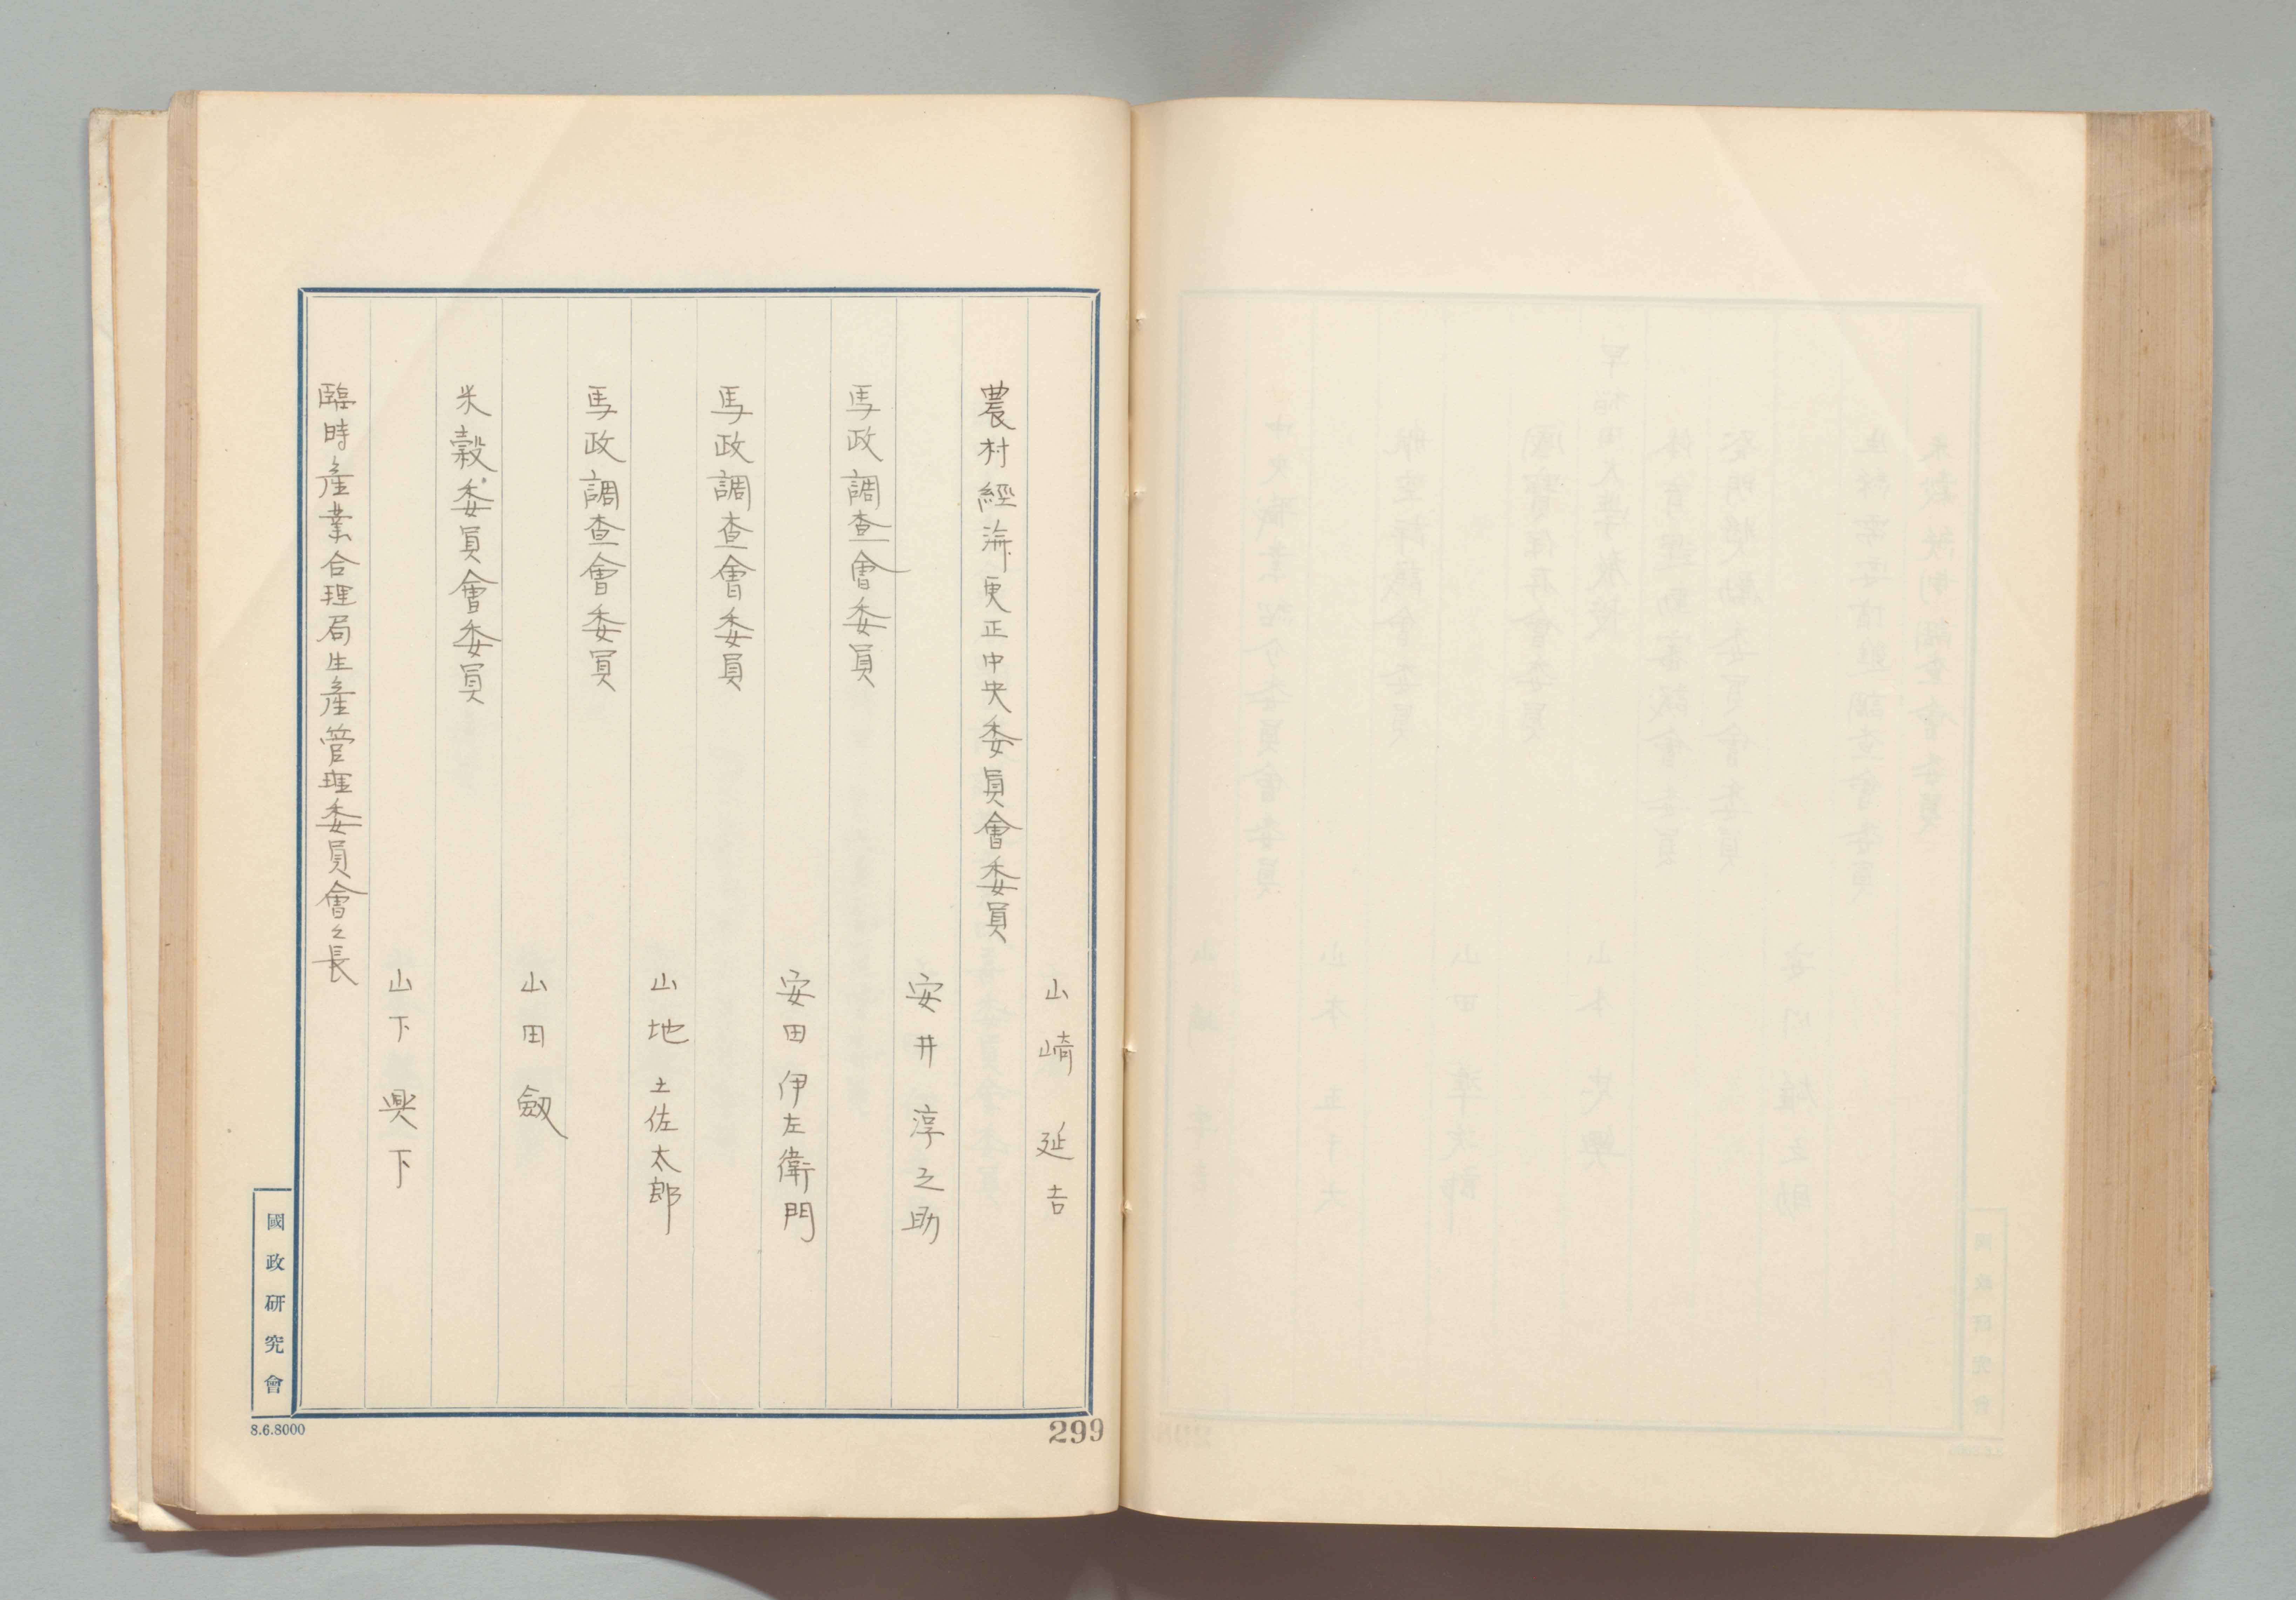 山崎延吉
農村經濟更正中央委員會委員
安井淳之助
馬政調査會委員
安田伊左衛門
馬政調査會委員
山地土佐太郎
馬政調査會委員
山田斂
米穀委員會委員
山下興下
臨時産業合理局生産管理委員會之長
國政研究會
8.6.8000
299